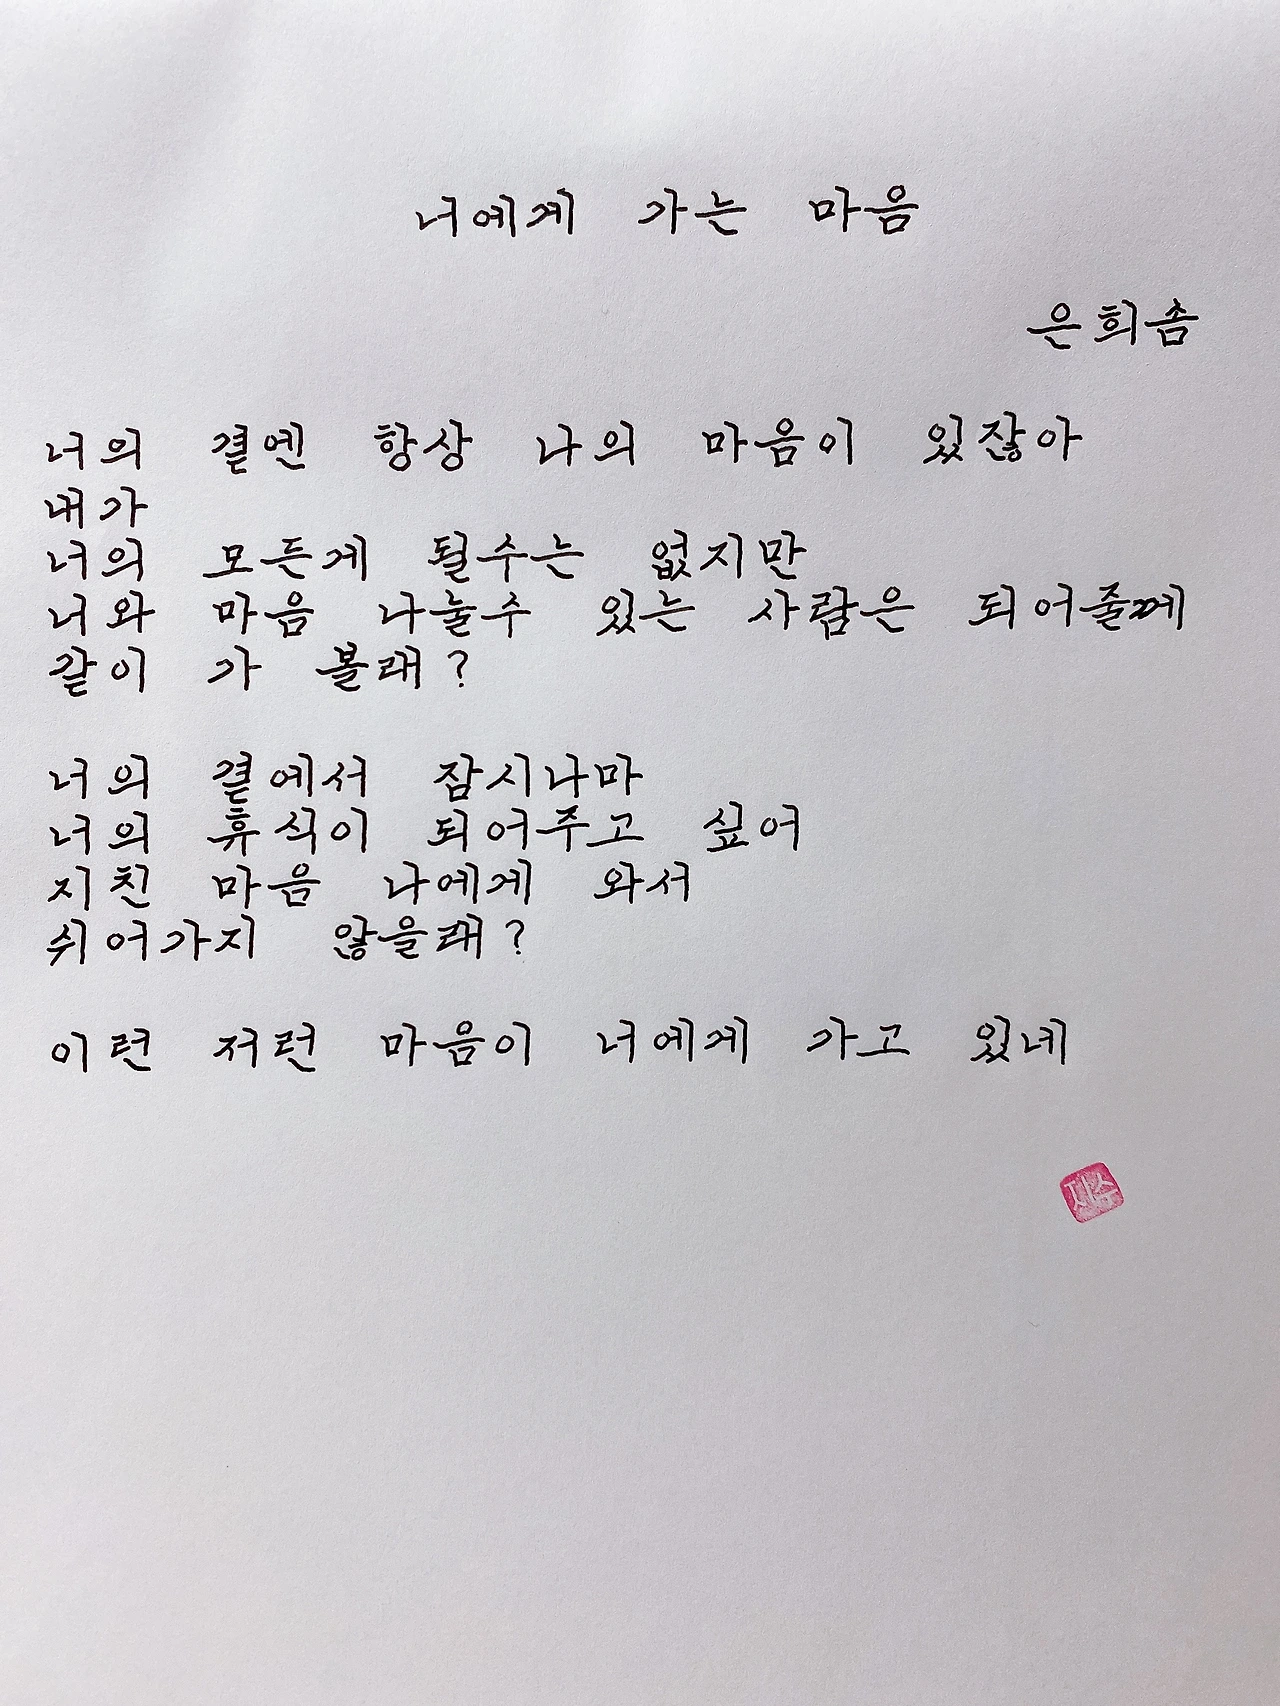 너에게 가는 마음
은희솜
너의 곁엔 항상 나의 마음이 있잖아
내가
너의 모든게 될수는 없지만
너와 마음 나눌수 있는 사람은 되어줄께
같이 가 볼래?
너의 곁에서 잠시나마
너의 휴식이 되어주고 싶어
지친 마음 나에게 와서
쉬어가지 않을래?
이런 저런 마음이 너에게 가고 있네
지수